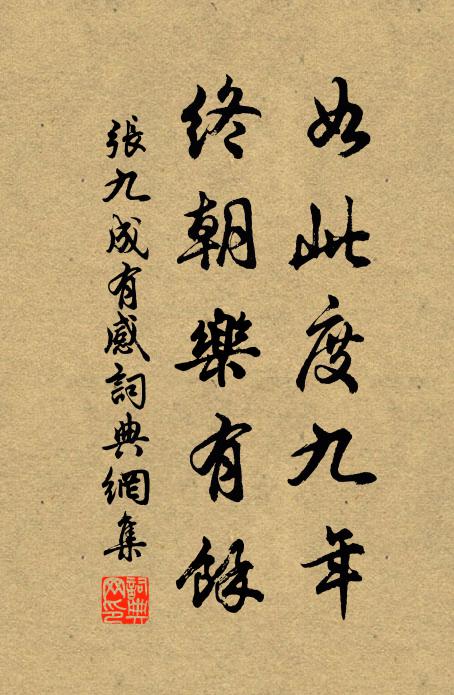 如此度九年
終朝樂有餘
張九成有感詞典網集
詞典網印